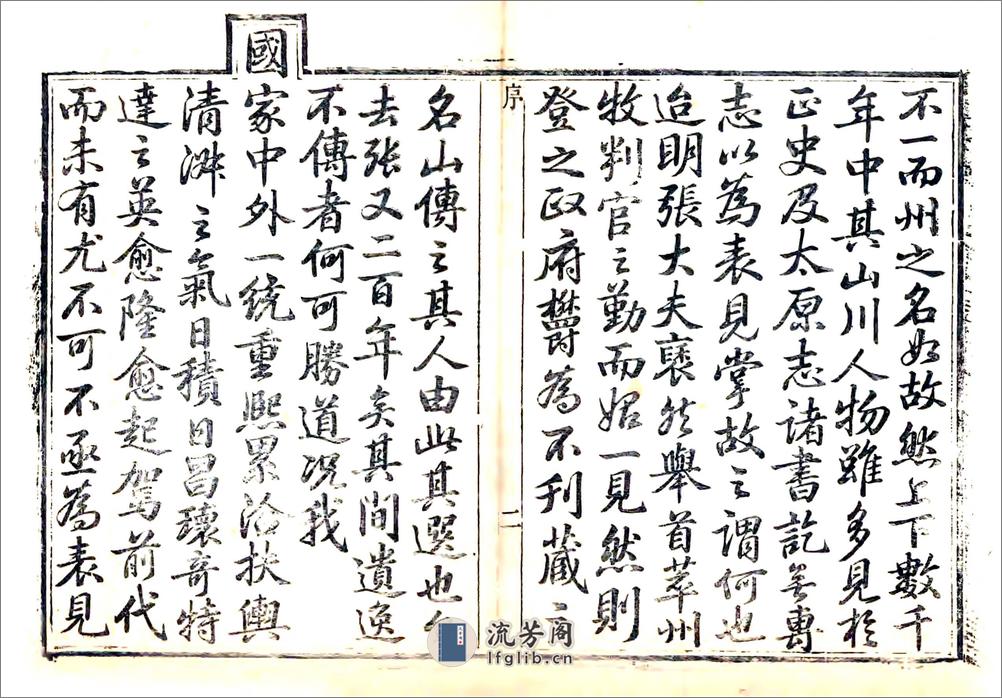 不一而州之名如故然上下數千
年中其山川人物雖多見於
正史及太原志諸書訖無專
志以為表見掌故之謂何也
迨明張大夫裒然舉首萃州
牧判官之勤而始一見然則
登之政府欝為不刊藏之
名山傳之其人由此其選也今
去張又二百年矣其間遺逸
不傳者何可勝道况我
國
家中外一統重熙累洽扶輿
清淋之氣日積日昌瓌奇特
達之英愈隆愈起駕前代
而未有尤不可不亟為表見
序
二
流芳阁
lfglib.cn